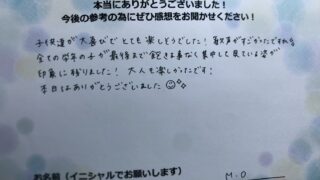 本当にありがとうございました！
今後の参考の為にぜひ感想をお聞かせください！
子供達が大喜びでとても楽しそうでした！歓声がすごかったですね
全ての学年の子が最後まで飽きる事なく集中して見ている姿が
印象に残りました！大人も楽しかったです！
本日はありがとうございました
お名前（イニシャルでお願いします）
M.O